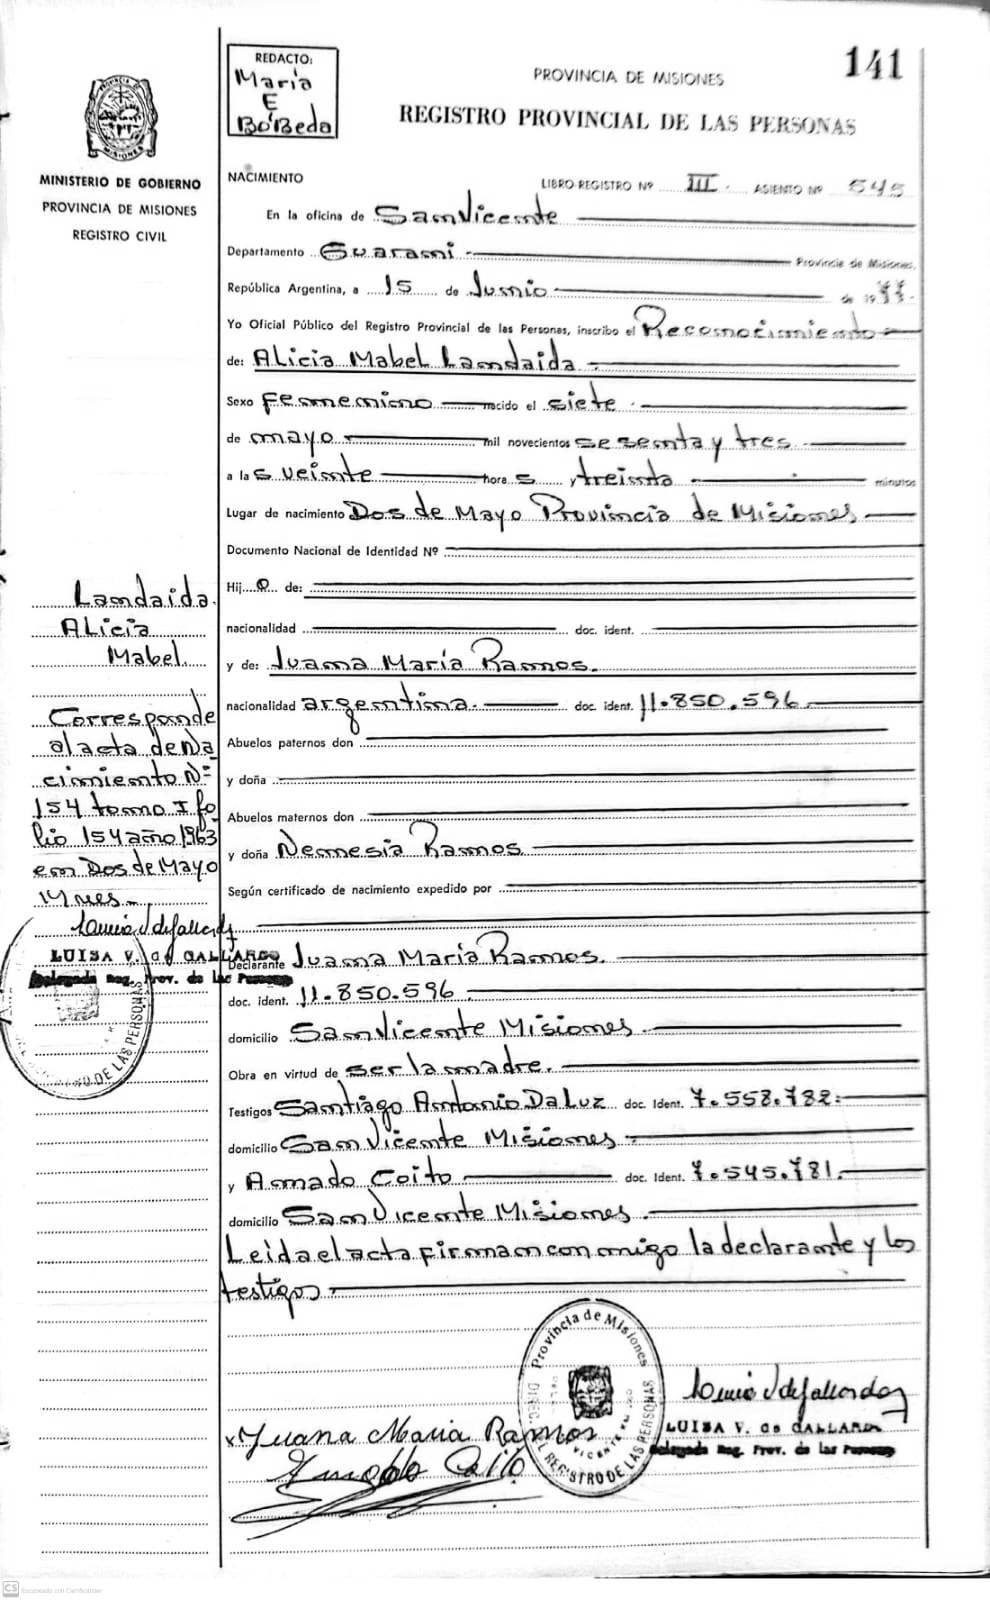 141
REDACTO:
María
E
BóBeda
PROVINCIA DE MISIONES
REGISTRO PROVINCIAL DE LAS PERSONAS
MINISTERIO DE GOBIERNO
PROVINCIA DE MISIONES
REGISTRO CIVIL
NACIMIENTO
LIBRO-REGISTRO Nº III. ASIENTO Nº 545
En la oficina de San Vicente
Departamento Guaraní Provincia de Misiones.
República Argentina, a 15 de Junio de 1977.
Yo Oficial Público del Registro Provincial de las Personas, inscribo el Reconocimiento
de: Alicia Mabel Landaida
Sexo femenino nacido el siete
de mayo mil novecientos sesenta y tres
a las veinte horas y treinta minutos
Lugar de nacimiento Dos de Mayo Provincia de Misiones
Documento Nacional de Identidad Nº
Hij a de:
nacionalidad doc. ident.
y de: Juana María Ramos.
nacionalidad argentina. doc. ident. 11.850.596
Abuelos paternos don
y doña
Abuelos maternos don
y doña Nemesia Ramos
Según certificado de nacimiento expedido por
Declarante Juana María Ramos.
doc. ident. 11.850.596
domicilio San Vicente Misiones
Obra en virtud de ser la madre.
Testigos Santiago Antonio Da Luz doc. Ident. 7.558.782
domicilio San Vicente Misiones
y Armado Coito doc. Ident. 7.545.781
domicilio San Vicente Misiones.
Leida el acta firman conmigo la declarante y los
testigos
Landaida.
Alicia
Mabel.
Corresponde
al acta de Na
cimiento Nº
154 tomo I fo
lio 154 año 1963
en Dos de Mayo
Mnes.
LUISA V. de GALLARDO
Delegada Reg. Prov. de las Personas
REGISTRO DE LAS PERSONAS
Provincia de Misiones
REGISTRO DE LAS PERSONAS
LUISA V. de GALLARDO
Delegada Reg. Prov. de las Personas
x Juana Maria Ramos
CS Escaneado con CamScanner